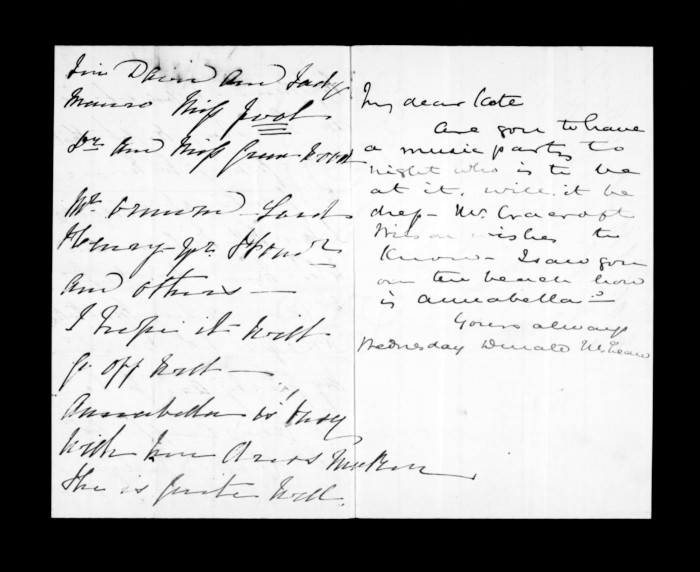 Sir David and Lady
Monro Miss
Dr and Miss Greenwood
Mr Ormond - Lord
Henry - Mr
and others -
I hope it will
go off well -
Annabella is busy
with her dress
She is quite well.
My dear Kate
Are you to have
a music party to
night who is to be
at it. will it be
dress - Mr. Cracroft
Wilson wishes to
know - I saw you
on the beach how
is Annabella -
Yours always
Wednesday Donald McLean